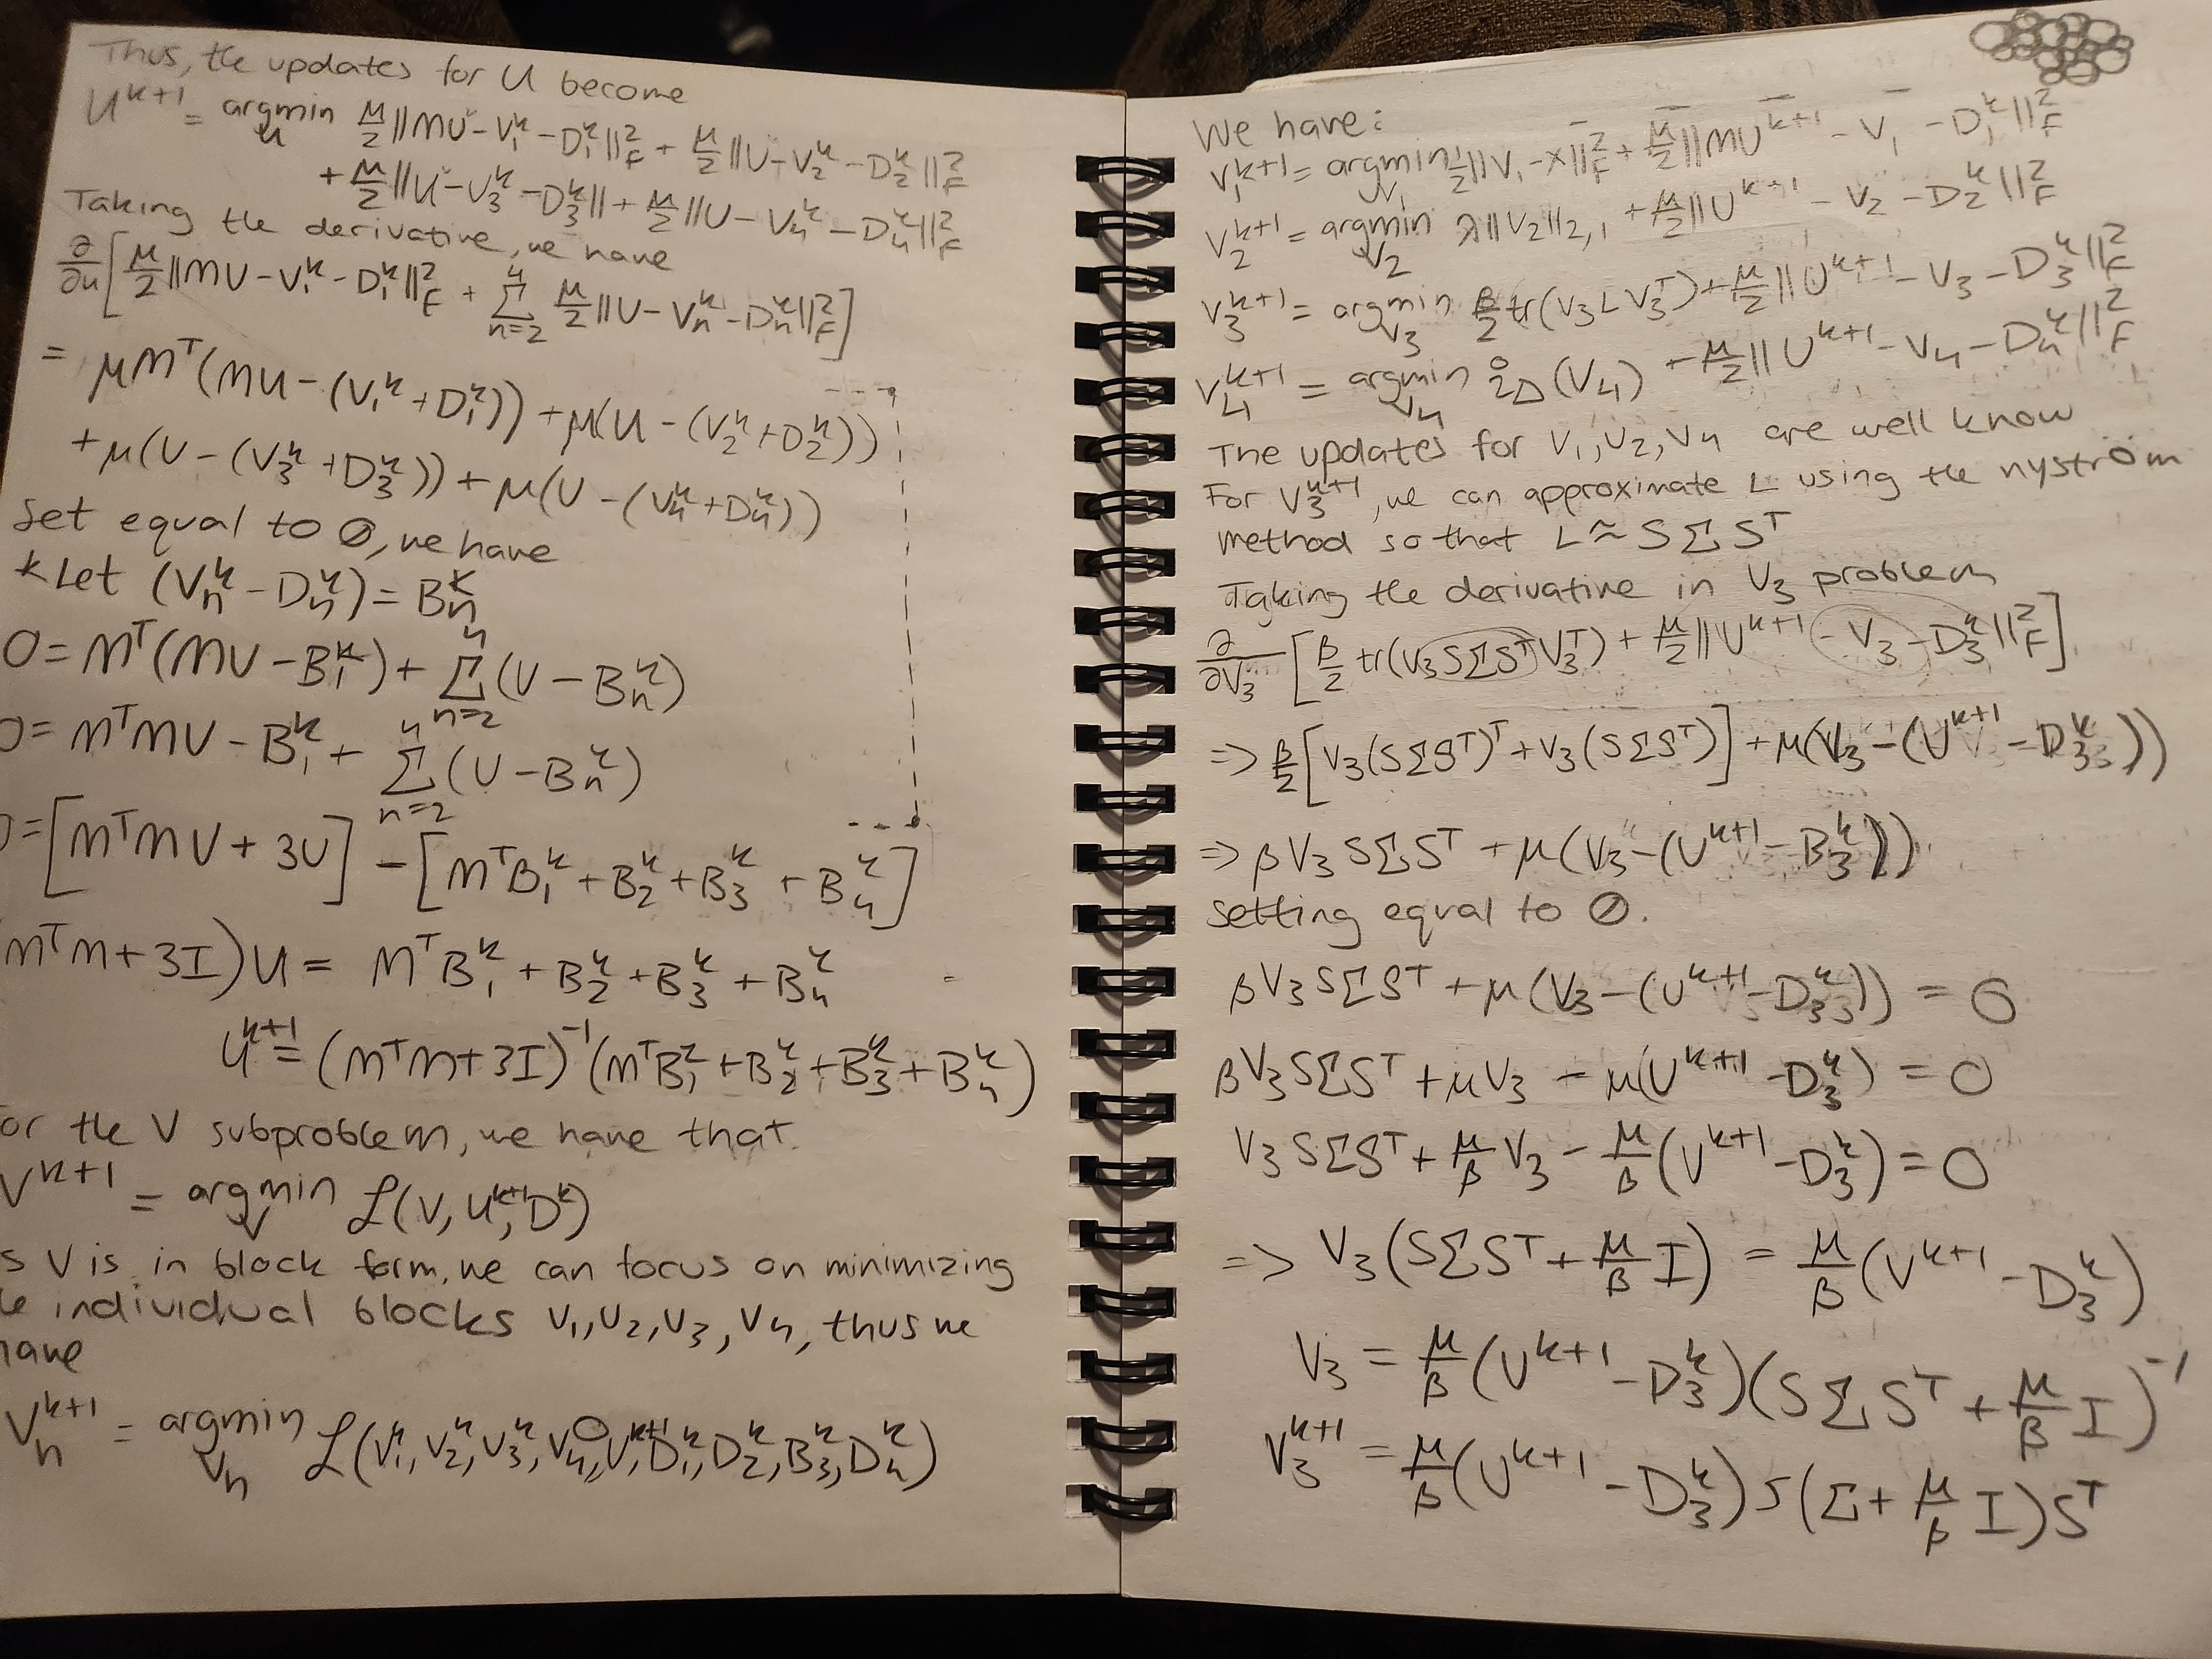 Thus, the updates for U become
U^{k+1} = argmin_U μ/2 ||MU - V_1^k - D_1^k||_F^2 + μ/2 ||U - V_2^k - D_2^k||_F^2
+ μ/2 ||U - V_3^k - D_3^k|| + μ/2 ||U - V_4^k - D_4^k||_F^2
Taking the derivative, we have
∂/∂u [μ/2 ||MU - V_1^k - D_1^k||_F^2 + Σ_{n=2}^4 μ/2 ||U - V_n^k - D_n^k||_F^2]
= μM^T(MU - (V_1^k + D_1^k)) + μ(U - (V_2^k + D_2^k))
+ μ(U - (V_3^k + D_3^k)) + μ(U - (V_4^k + D_4^k))
Set equal to 0, we have
* Let (V_n^k - D_n^k) = B_n^k
0 = M^T(MU - B_1^k) + Σ_{n=2}^4 (U - B_n^k)
0 = M^TMU - B_1^k + Σ_{n=2}^4 (U - B_n^k)
0 = [M^TMU + 3U] - [M^TB_1^k + B_2^k + B_3^k + B_4^k]
(M^TM + 3I)U = M^TB_1^k + B_2^k + B_3^k + B_4^k
U^{k+1} = (M^TM + 3I)^{-1}(M^TB_1^k + B_2^k + B_3^k + B_4^k)
or the V subproblem, we have that
V^{k+1} = argmin_V L(V, U^{k+1}, D^k)
s V is in block form, we can focus on minimizing
individual blocks V_1, V_2, V_3, V_4, thus we
have
V_n^{k+1} = argmin_{V_n} L(V_1^k, V_2^k, V_3^k, V_4, U^{k+1}, D_1^k, D_2^k, B_3^k, D_4^k)
We have:
V_1^{k+1} = argmin_{V_1} 1/2 ||V_1 - X||_F^2 + μ/2 ||MU^{k+1} - V_1 - D_1^k||_F^2
V_2^{k+1} = argmin_{V_2} λ||V_2||_{2,1} + μ/2 ||U^{k+1} - V_2 - D_2^k||_F^2
V_3^{k+1} = argmin_{V_3} β/2 tr(V_3 L V_3^T) + μ/2 ||U^{k+1} - V_3 - D_3^k||_F^2
V_4^{k+1} = argmin_{V_4} i_Δ(V_4) + μ/2 ||U^{k+1} - V_4 - D_4^k||_F^2
The updates for V_1, V_2, V_4 are well know
For V_3^{k+1}, we can approximate L using the nyström
method so that L ≈ SΣS^T
Taking the derivative in V_3 problem
∂/∂V_3 [β/2 tr(V_3SΣS^TV_3^T) + μ/2 ||U^{k+1} - V_3 - D_3^k||_F^2]
=> β/2 [V_3(SΣS^T)^T + V_3(SΣS^T)] + μ(V_3 - (U^{k+1} - D_3^k))
=> βV_3SΣS^T + μ(V_3 - (U^{k+1} - B_3^k))
setting equal to 0.
βV_3SΣS^T + μ(V_3 - (U^{k+1} - D_3^k)) = 0
βV_3SΣS^T + μV_3 - μ(U^{k+1} - D_3^k) = 0
V_3SΣS^T + μ/β V_3 - μ/β (U^{k+1} - D_3^k) = 0
=> V_3(SΣS^T + μ/β I) = μ/β (U^{k+1} - D_3^k)
V_3 = μ/β (U^{k+1} - D_3^k)(SΣS^T + μ/β I)^{-1}
V_3^{k+1} = μ/β (U^{k+1} - D_3^k)S(Σ + μ/β I)S^T